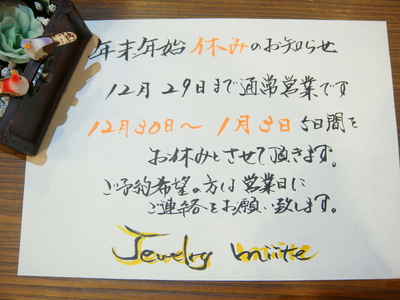 年末年始 休みのお知らせ
12月29日まで通常営業です
12月30日～1月3日 5日間を
お休みとさせて頂きます。
ご予約希望の方は営業日に
ご連絡をお願い致します。
Jewelry miite